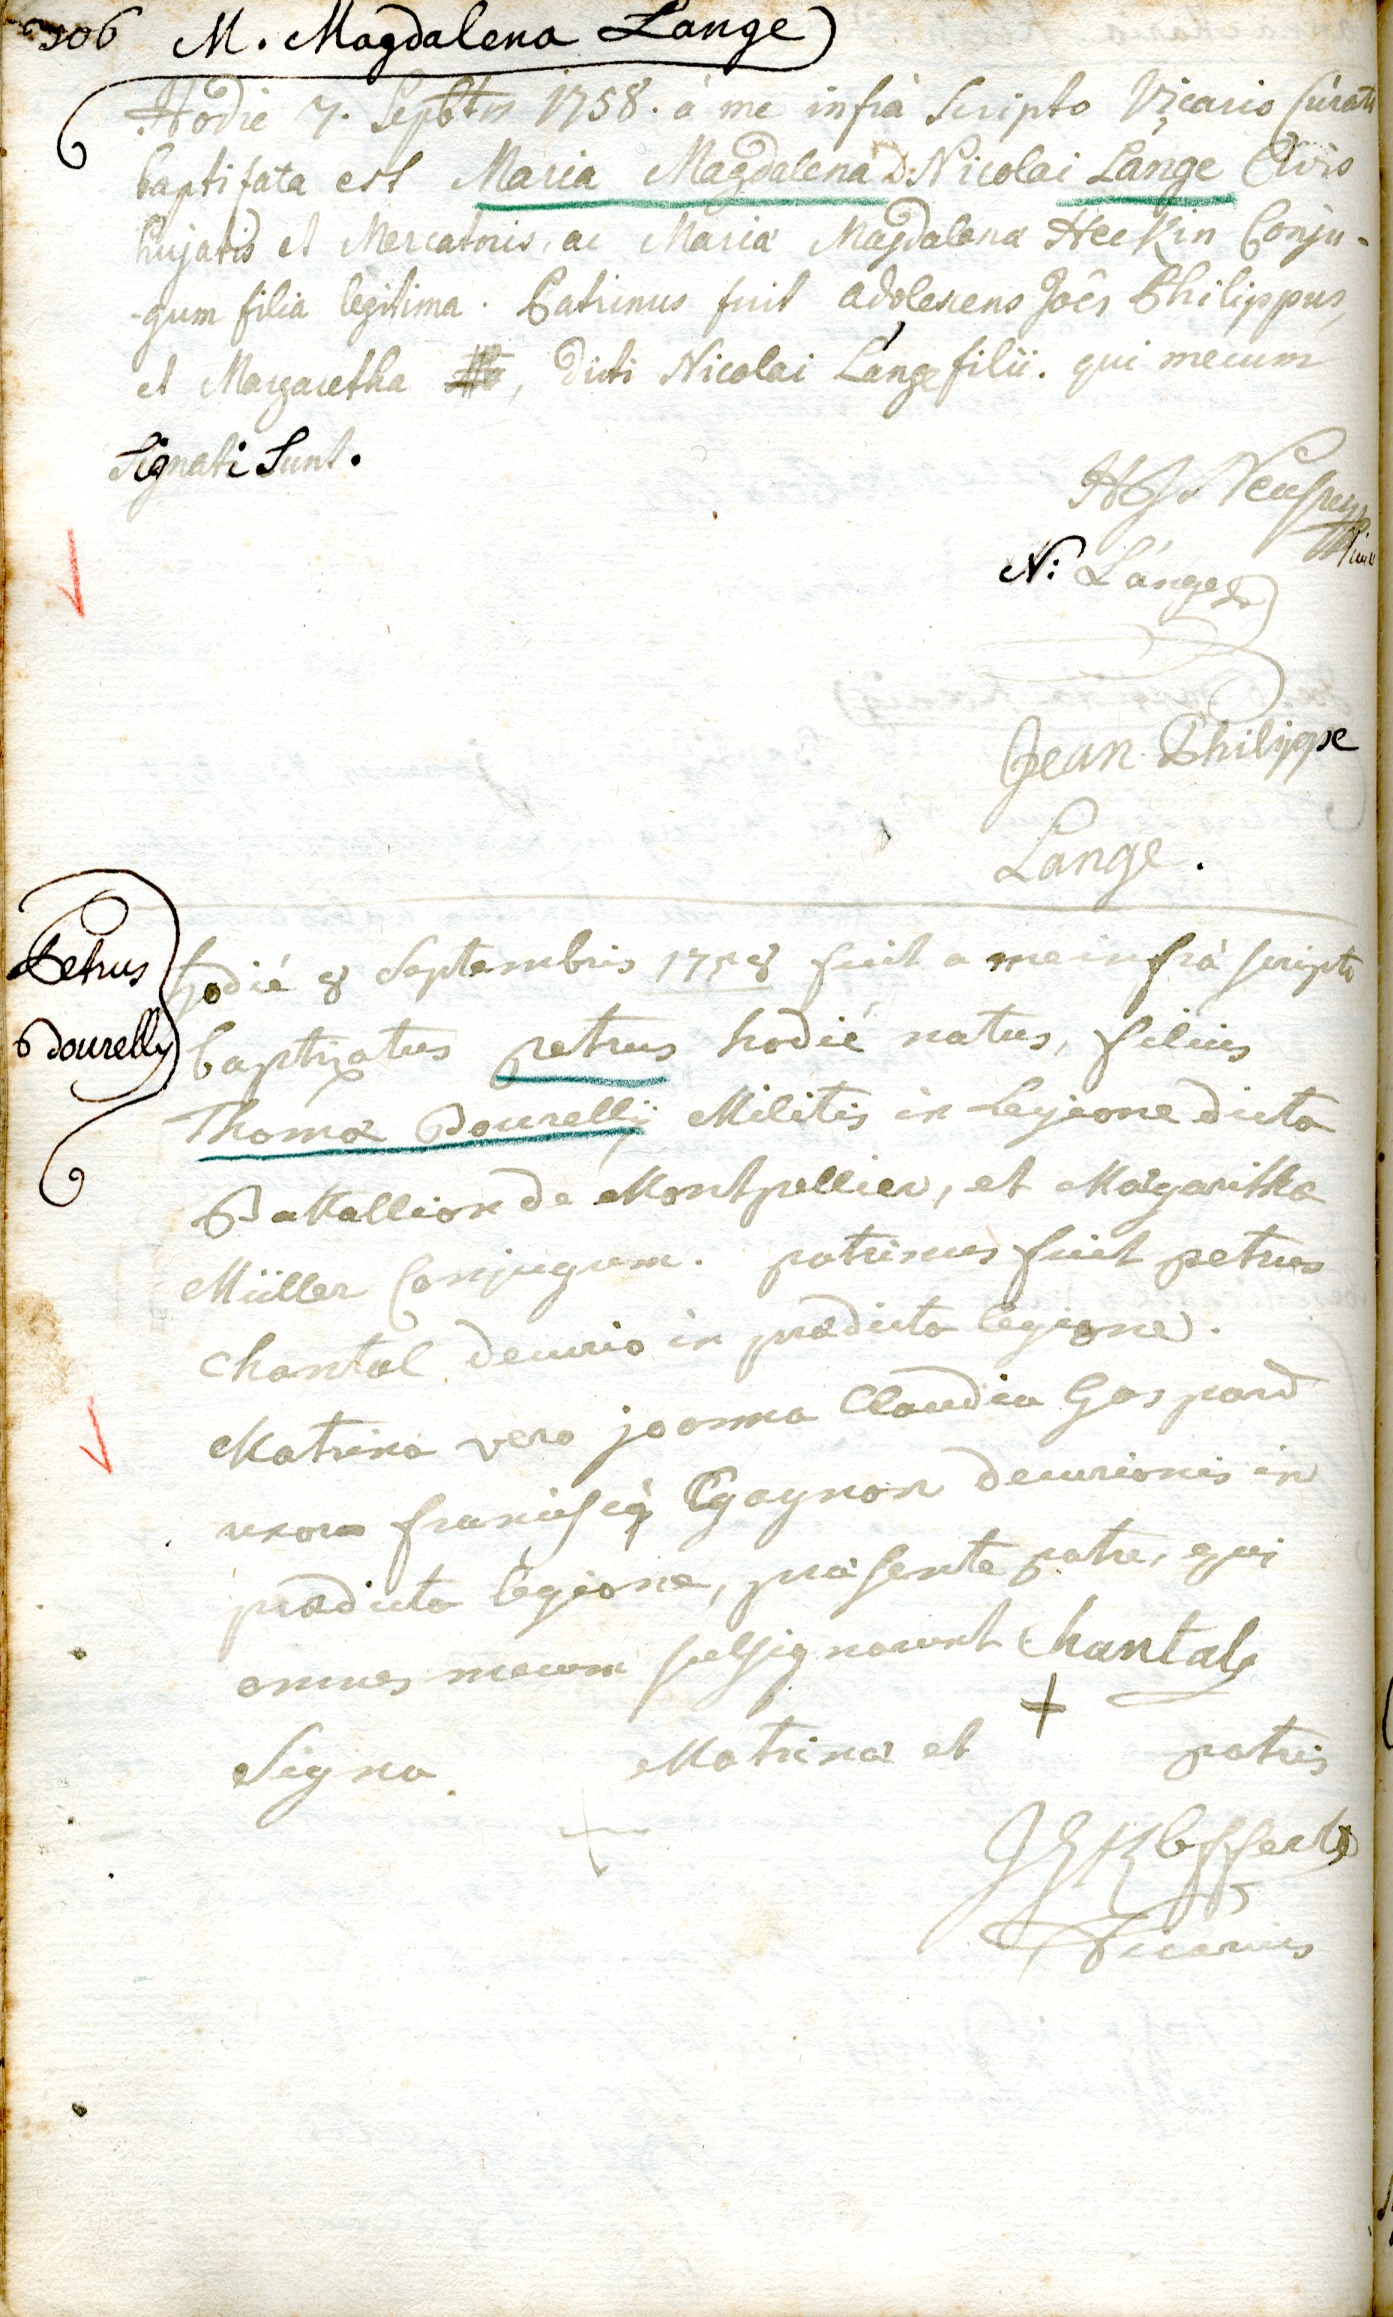 306 M. Magdalena Lange
Hodie 7. Septbris 1758. à me infrà Scripto Vicario Curato
baptisata est Maria Magdalena D: Nicolai Lange Civis
hujatis et Mercatoris, ac Maria Magdalena Heckin Conju-
-gum filia legitima. Patrinus fuit adolescens Joês Philippus,
et Margaretha , dicti Nicolai Lange filii. qui mecum
Signati Sunt.
N: Lange
Jean Philippe
Lange.
Petrus
Bourelly
hodié 8 Septembris 1758 fuit a me infrà scripto
baptizatus petrus hodié natus, filius
Thomæ Bourellÿ Militis in Legione dicta
Battallion de Montpellier, et Margaritha
Müller Conjugum. patrinus fuit petrus
chantal decurio in prædicta legione.
Matrina vero joanna Claudia Gaspard
uxor francisci Gagnon decurionis in
prædicta legione, præsente patre, qui
omnes mecum subsignarunt Chantal
+
Signa Matrinæ et patris
+
Vicarius